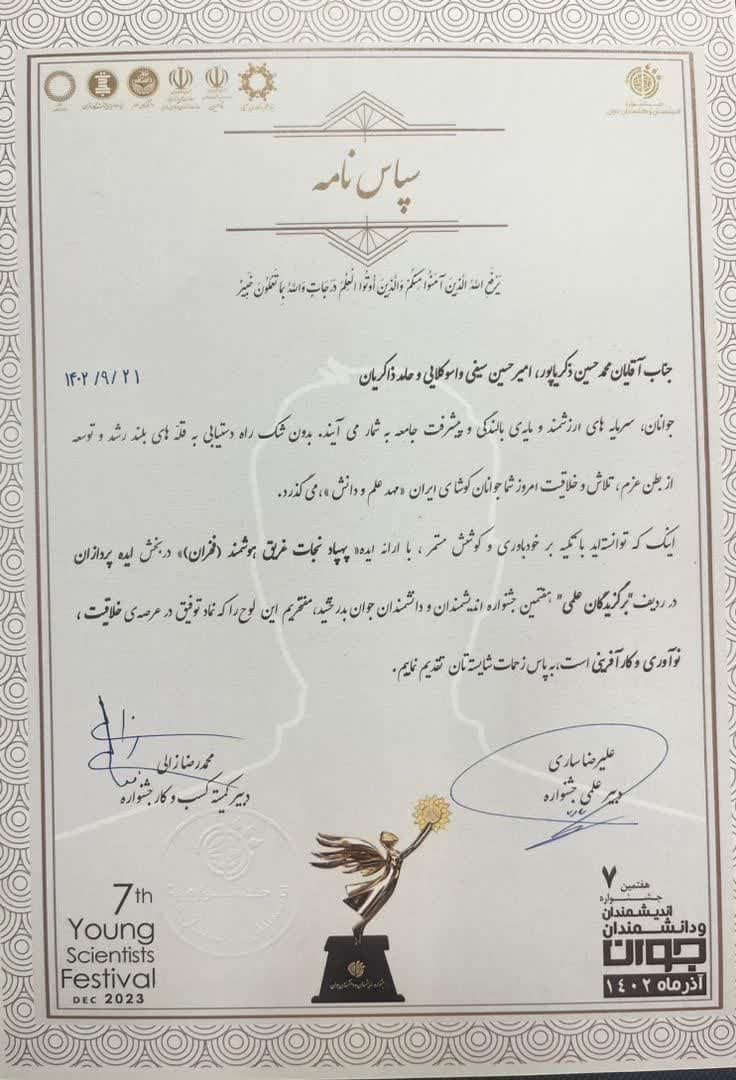 سپاس نامه
یَرْفَعِ اللهُ الَّذینَ آمَنُوا مِنْکُمْ وَالَّذینَ أُوتُوا الْعِلْمَ دَرَجَاتٍ وَاللهُ بِمَا تَعْمَلُونَ خَبِیرٌ
جناب آقایان محمدحسین ذکریاپور، امیرحسین سیفی واسوکلایی و حامد ذاکریان
۱۴۰۲/۹/۲۱
جوانان، سرمایه های ارزشمند و مایه‌ی بالندگی و پیشرفت جامعه به شمار می آیند. بدون شک راه دستیابی به قله های بلند رشد و توسعه
از بطن عزم، تلاش و خلاقیت امروز شما جوانان کوشای ایران «مهد علم و دانش»، می گذرد.
اینک که توانسته‌اید با تکیه بر خودباوری و کوشش مستمر، با ارائه ایده« پهپاد نجات غریق هوشمند (فخران)» در بخش ایده پردازان
در ردیف "برگزیدگان علمی" هفتمین جشنواره اندیشمندان و دانشمندان جوان بدرخشید، مفتخریم این لوح را که نماد توفیق در عرصه‌ی خلاقیت ،
نوآوری و کارآفرینی است، به پاس زحمات شایسته‌تان تقدیم نماییم.
علیرضا ساری
دبیر علمی جشنواره
محمدرضا زالی
دبیر کمیته کسب و کار جشنواره
7th
Young
Scientists
Festival
DEC 2023
۷
هفتمین
جشنواره
اندیشمندان
ودانشمندان
جوان
آذرماه ۱۴۰۲